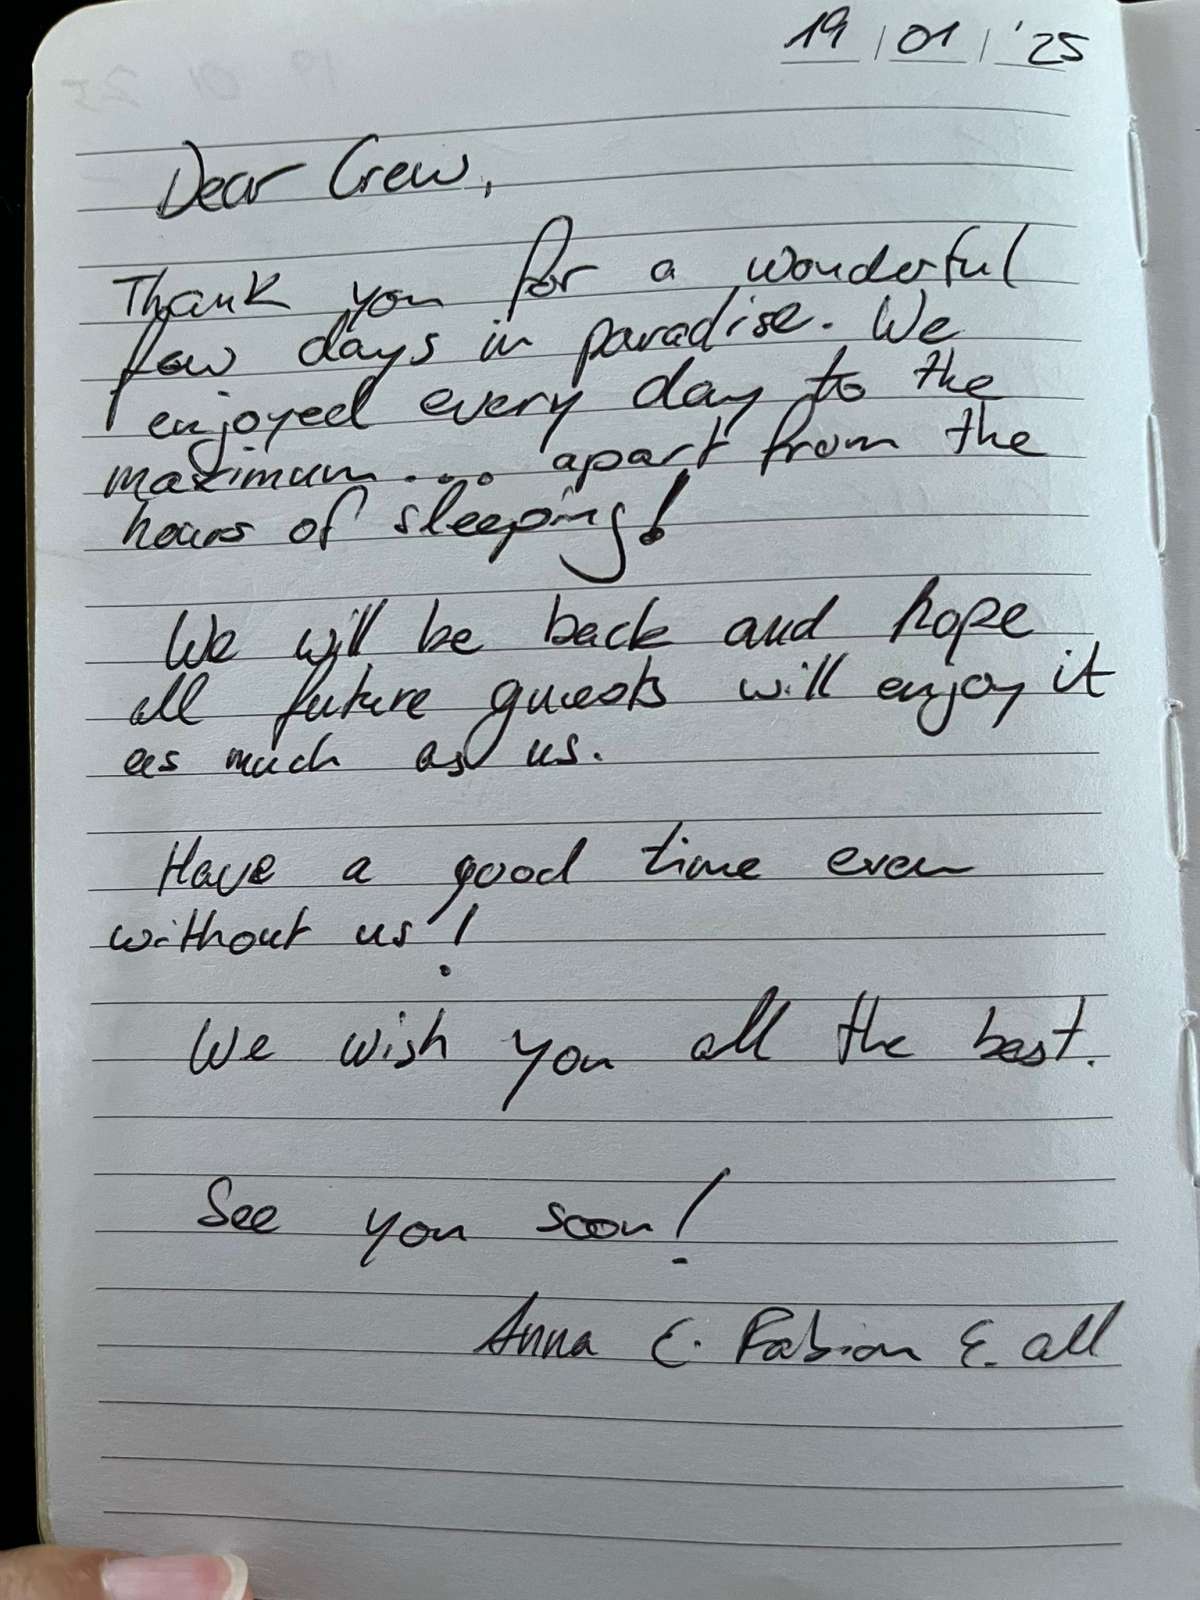 19/01/'25
Dear Crew,
Thank you for a wonderful
few days in paradise. We
enjoyed every day to the
maximum... apart from the
hours of sleeping!
We will be back and hope
all future guests will enjoy it
as much as us.
Have a good time even
without us!
We wish you all the best.
See you soon!
Anna &. Fabian &. all